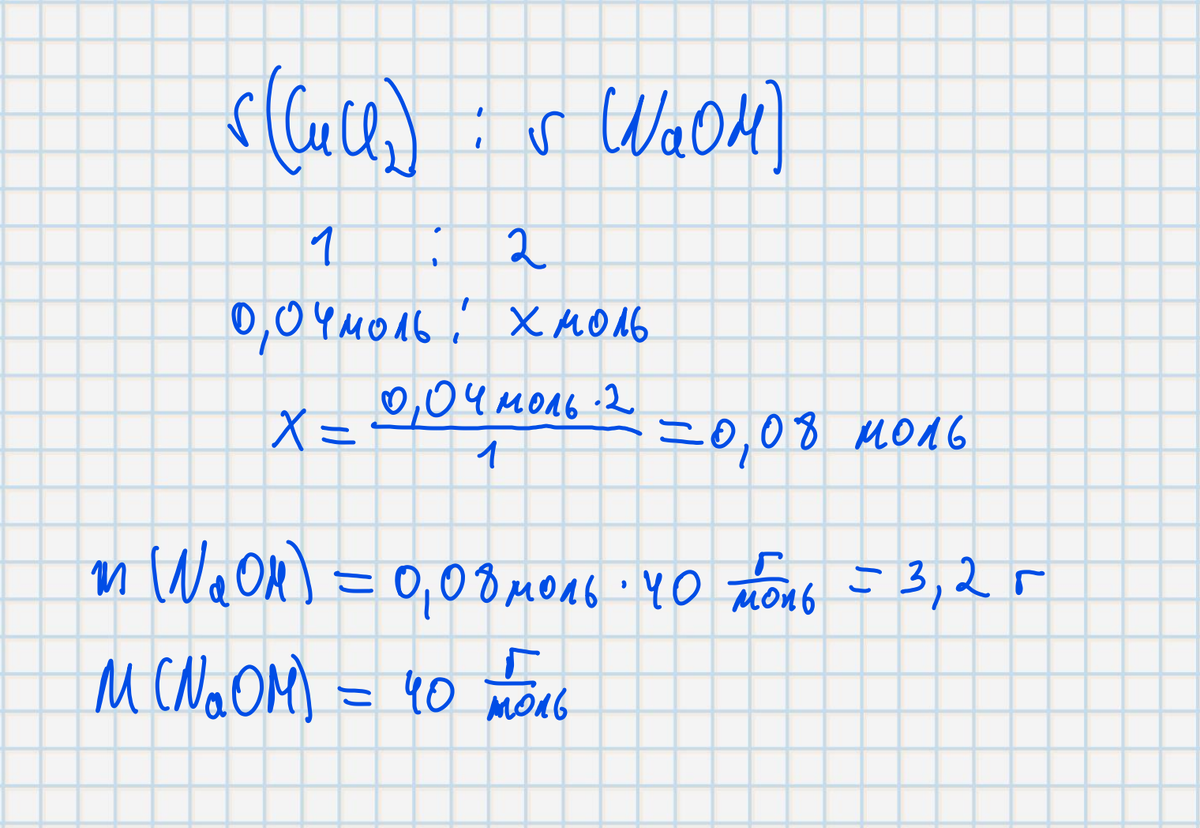 ν(CuCl₂) : ν(NaOH)
1 : 2
0,04 моль : x моль
x = 0,04 моль · 2 / 1 = 0,08 моль
m(NaOH) = 0,08 моль · 40 г/моль = 3,2 г
M(NaOH) = 40 г/моль